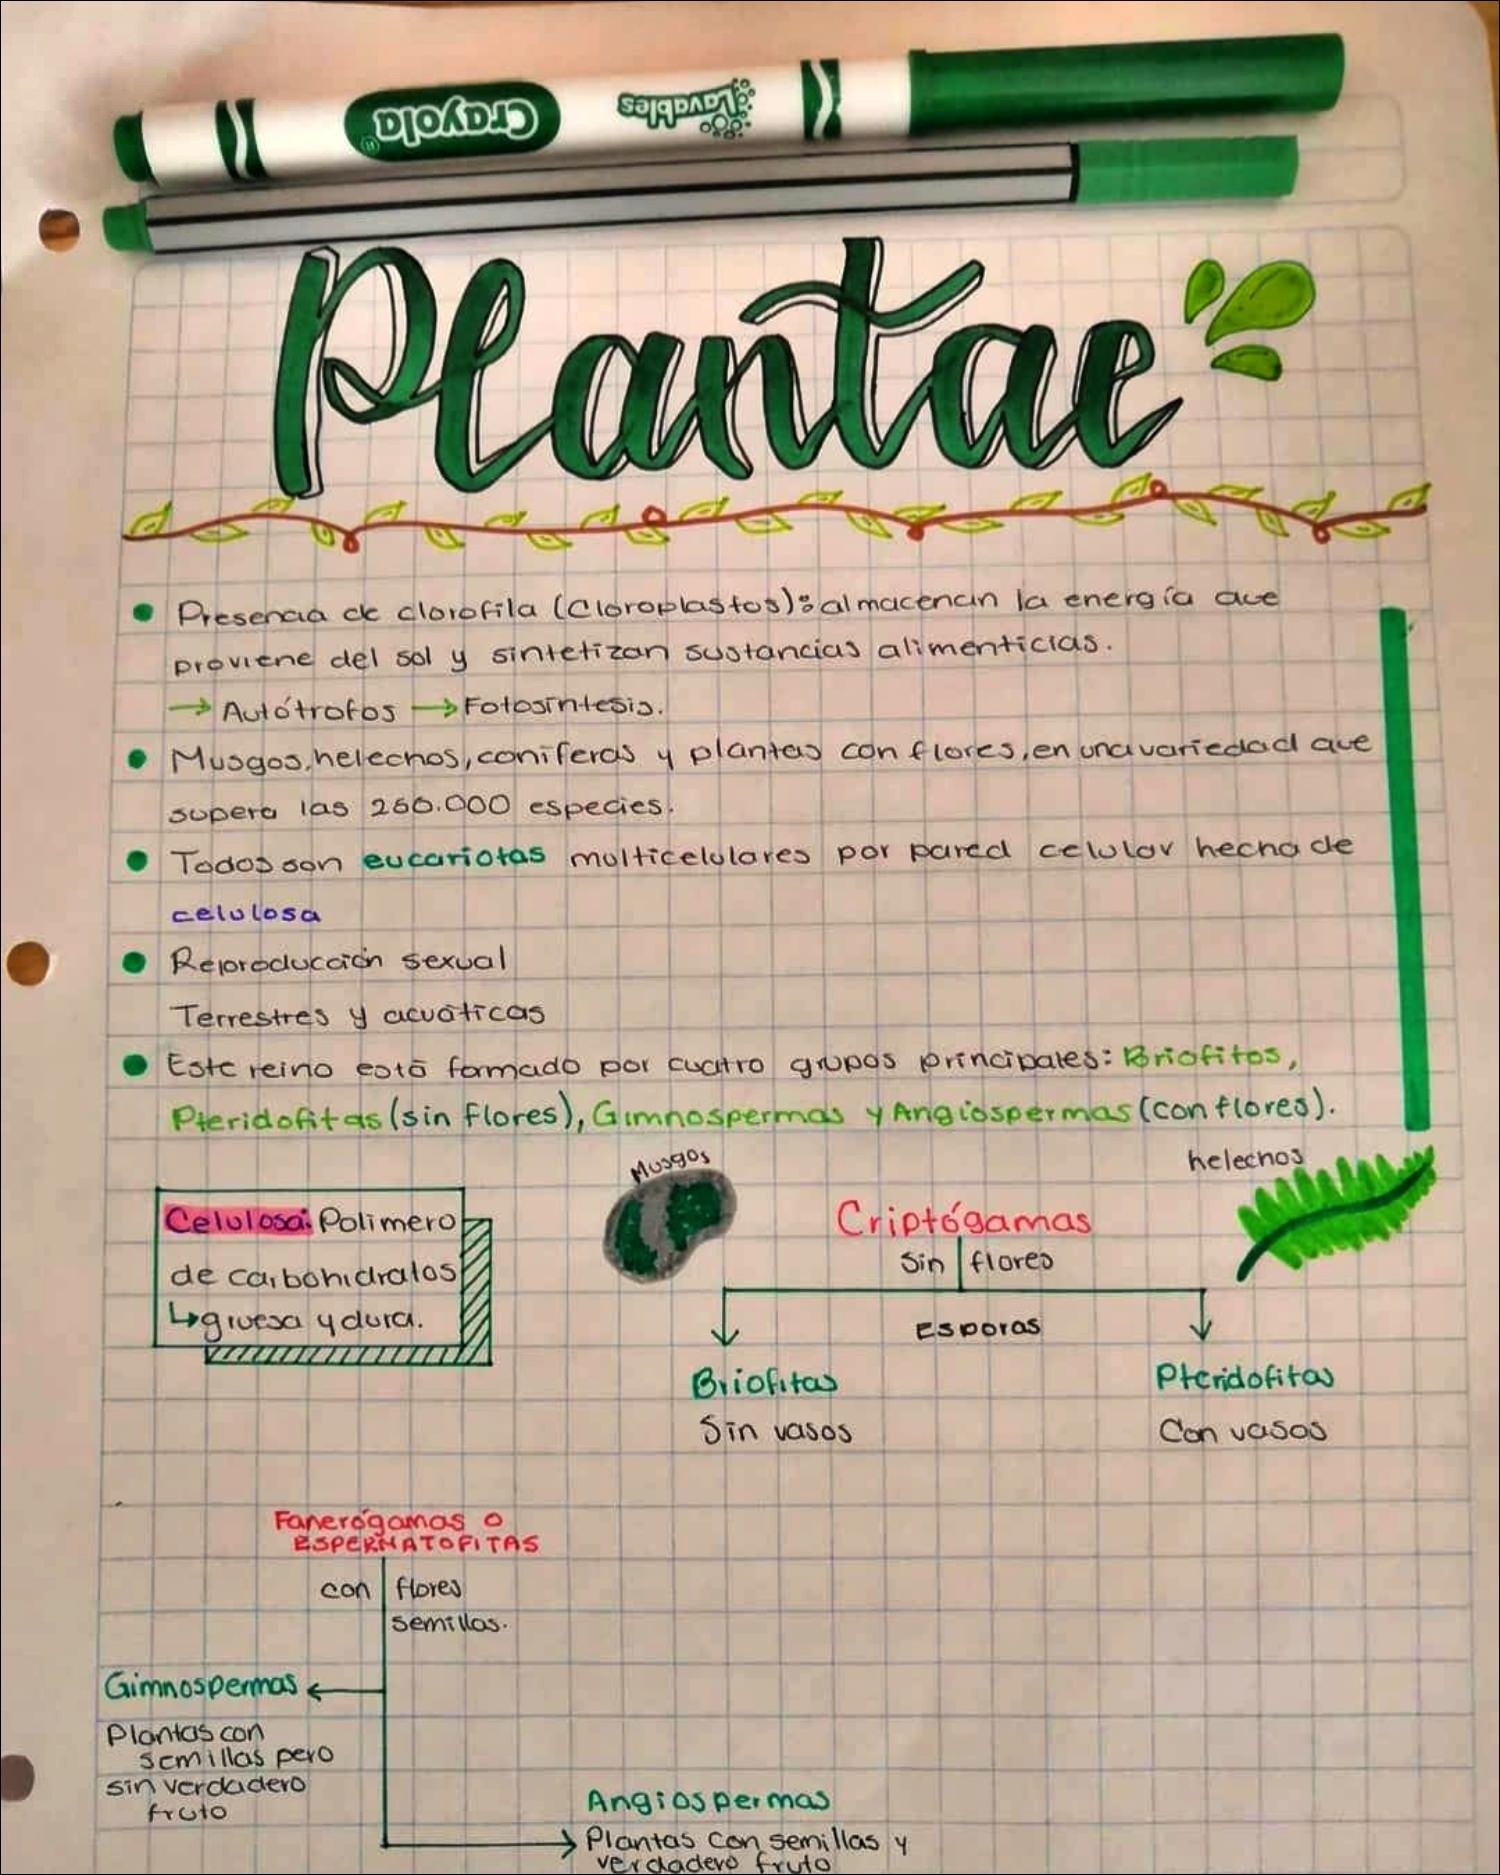 Crayola
Lavables
Plantae
Presencia de clorofila (Cloroplastos): almacenan la energía que
proviene del sol y sintetizan sustancias alimenticias.
→ Autótrofos → Fotosíntesis.
Musgos, helechos, coníferas y plantas con flores, en una variedad que
supera las 260.000 especies.
Todos son eucariotas multicelulares por pared celular hecha de
celulosa
Reproducción sexual
Terrestres y acuáticas
Este reino está formado por cuatro grupos principales: Briofitos,
Pteridofitas (sin flores), Gimnospermas y Angiospermas (con flores).
Musgos
helechos
Celulosa: Polimero
de carbohidratos
↳ gruesa y dura.
Criptógamas
Sin flores
Esporas
Briofitas
Sin vasos
Pteridofitas
Con vasos
Fanerógamas o
ESPERMATOFITAS
con flores
semillas.
Gimnospermas
Plantas con
semillas pero
sin verdadero
fruto
Angiospermas
Plantas con semillas y
verdadero fruto